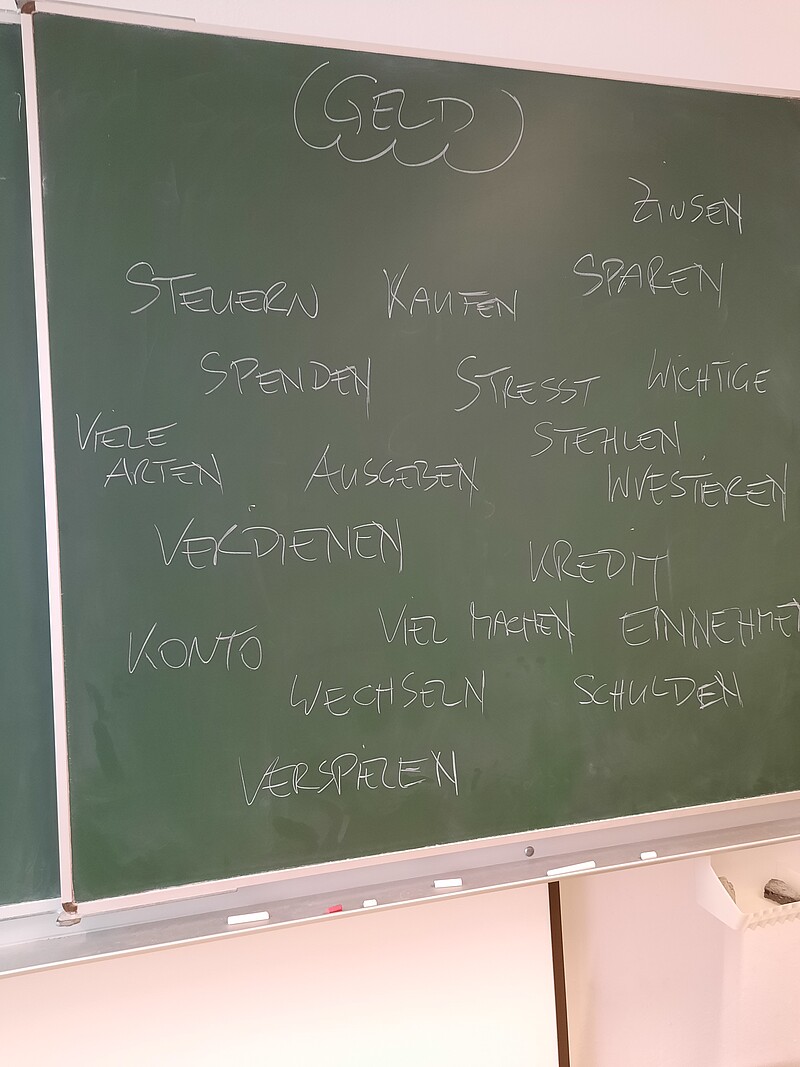 GELD
ZINSEN
STEUERN KAUFEN SPAREN
SPENDEN STRESST WICHTIGE
VIELE
ARTEN AUSGEBEN STEHLEN
INVESTIEREN
VERDIENEN KREDIT
KONTO VIEL MACHEN EINNEHMEN
WECHSELN SCHULDEN
VERSPIELEN